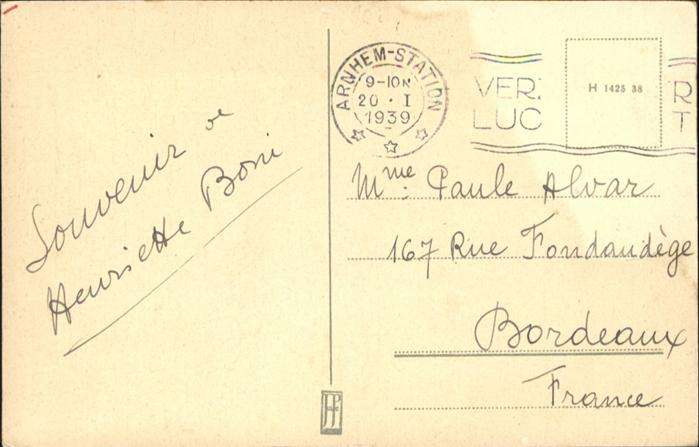 Souvenir de
Henriette Boni
ARNHEM-STATION
9-10N
20 · I
1939
VER. R
LUC T
H 1425 38
Mme. Paule Alvar
167 Rue Fondaudège
Bordeaux
France